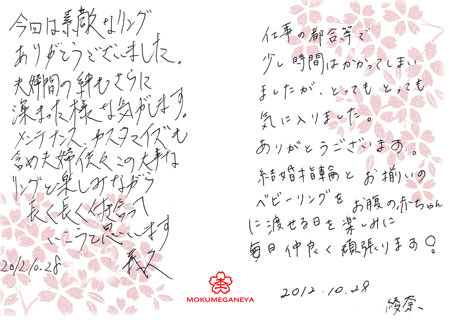 今回は素敵なリング
ありがとうございました。
夫婦間の絆もさらに
深まった様な気がします。
メンテナンス、カスタマイズも
含め夫婦ともこの大事な
リングと楽しみながら
長く長く付合って
いこうと思います
2012.10.28
仕事の都合等で
少し時間はかかってしまい
ましたが、とっても とっても
気に入りました。
ありがとうございます。
結婚指輪と お揃いの
ベビーリングを お腹の赤ちゃん
に渡せる日を楽しみに
毎日仲良く 頑張ります♡
2012.10.28
綾奈
MOKUMEGANEYA